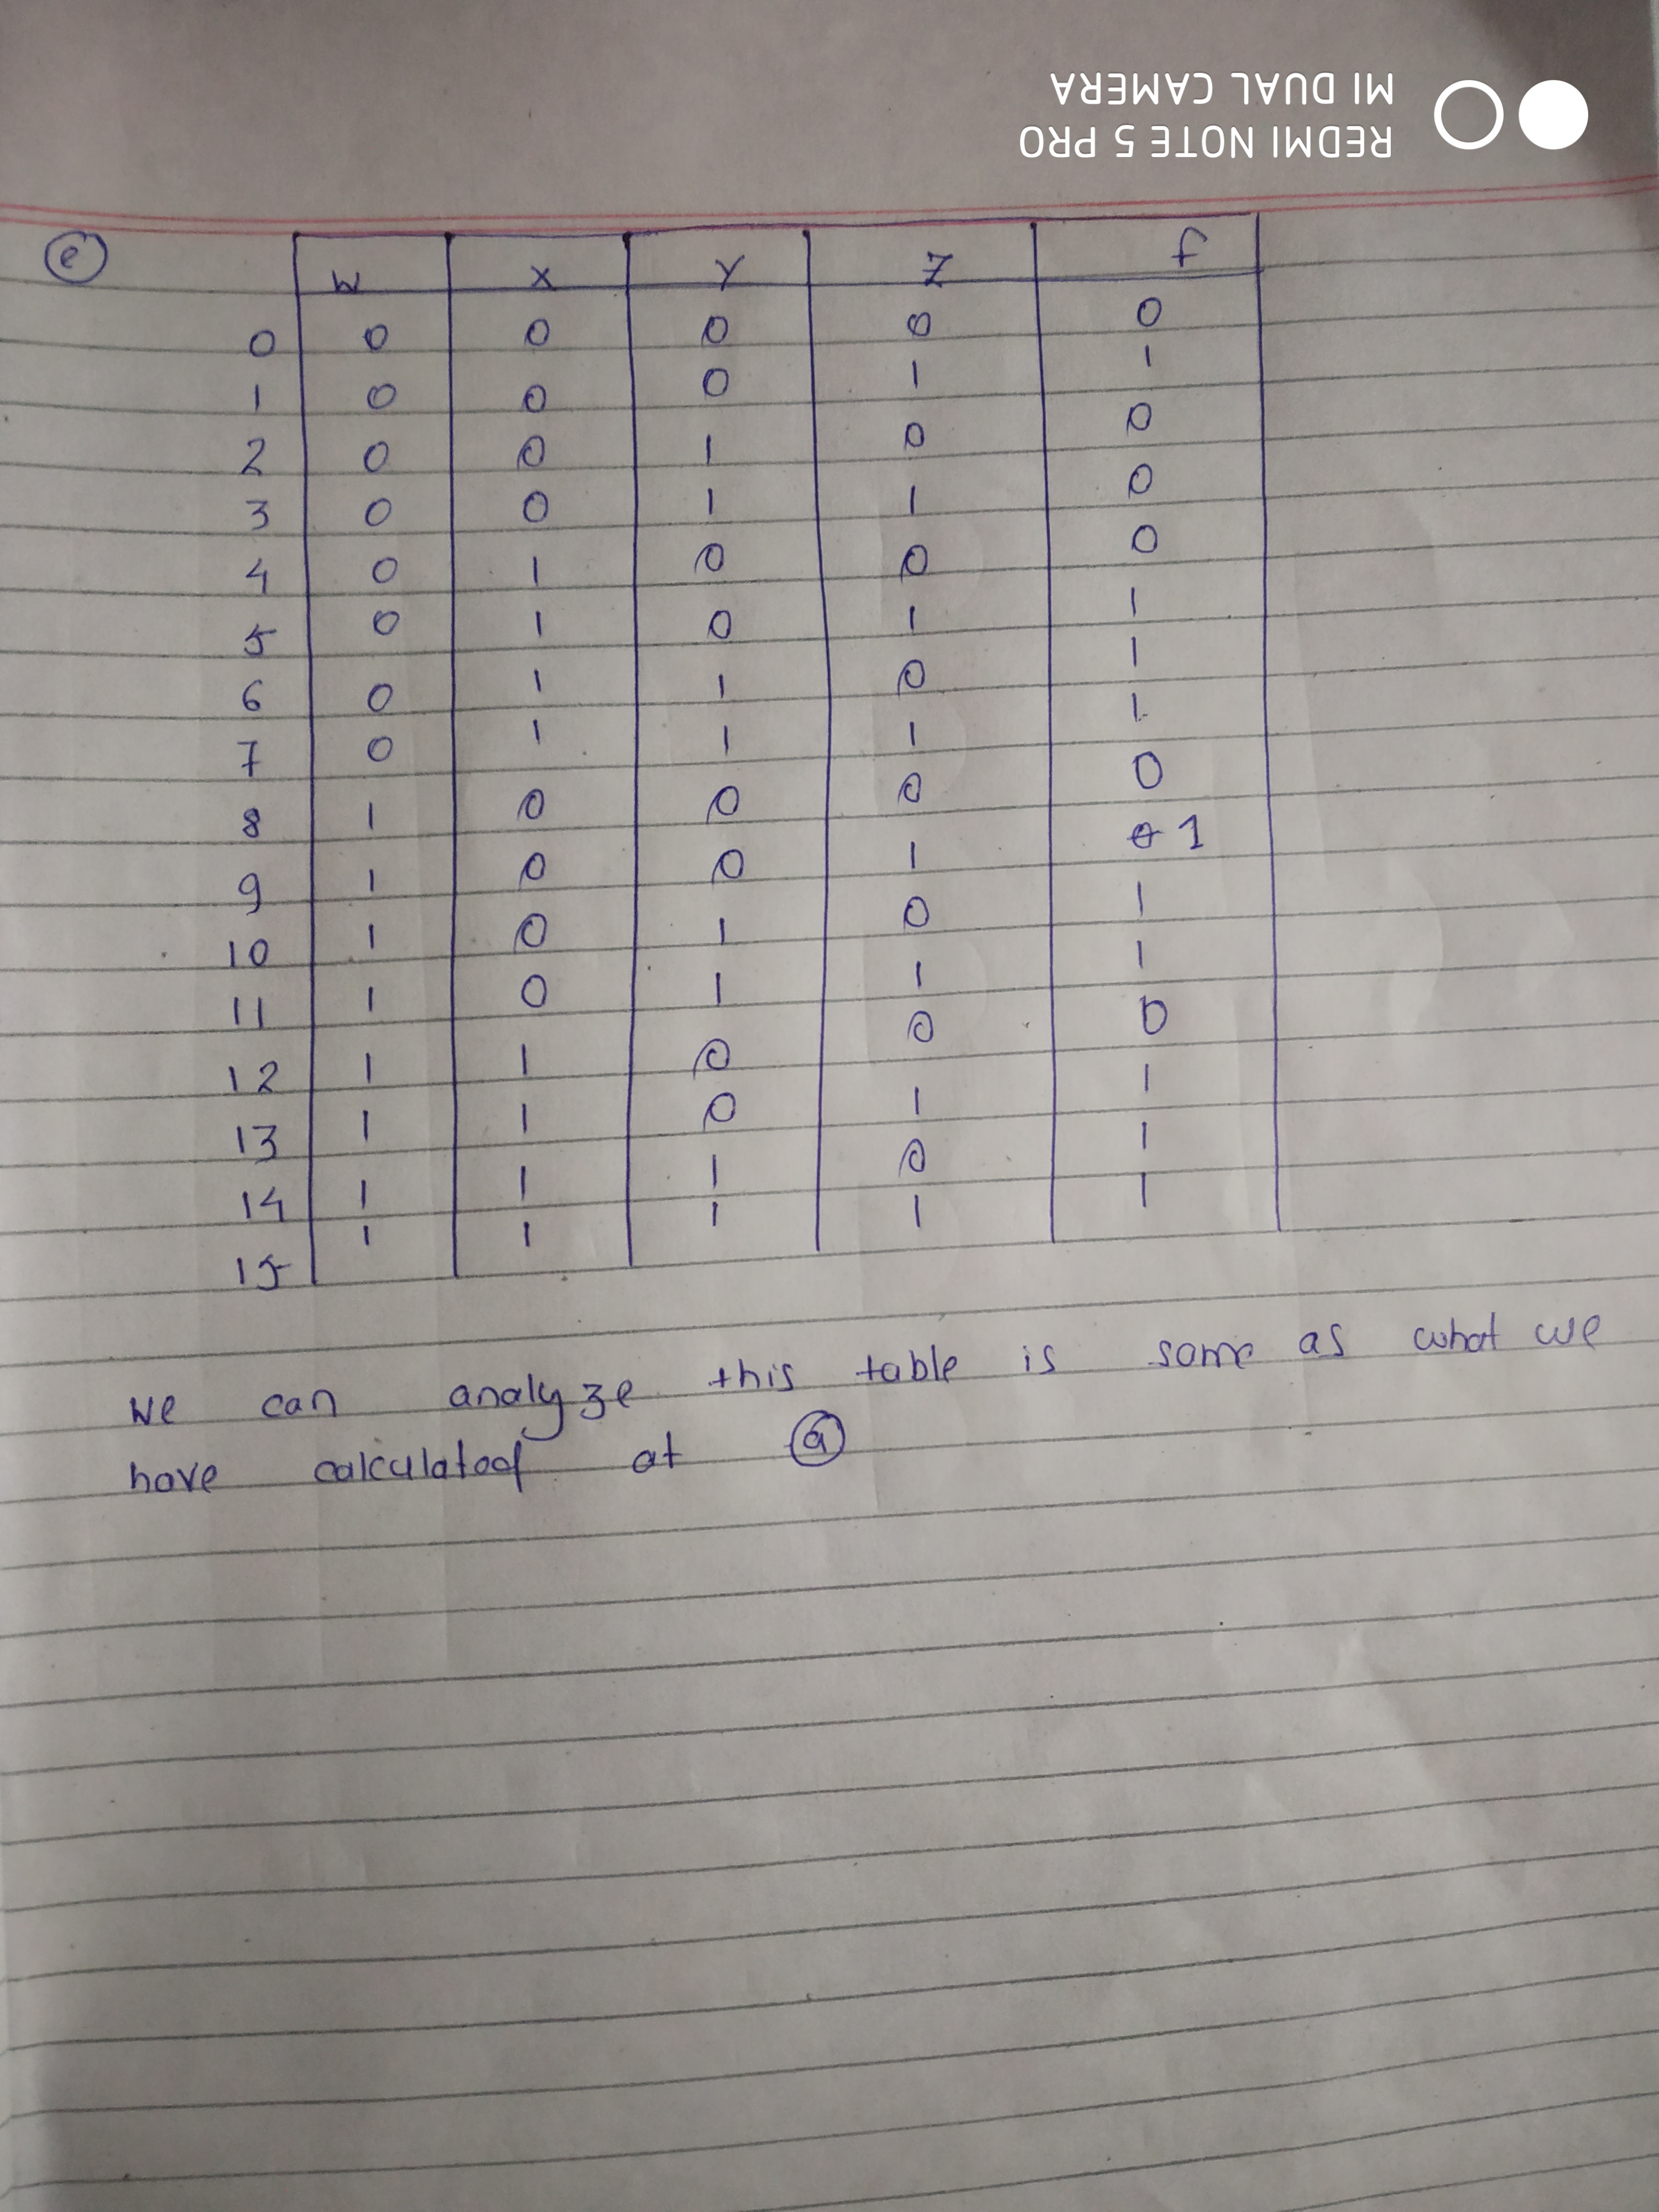 REDMI NOTE 5 PRO
MI DUAL CAMERA
e W X Y Z f
0 0 0 0 0 0
1 0 0 0 1 1
2 0 0 1 0 0
3 0 0 1 1 0
4 0 1 0 0 0
5 0 1 0 1 1
6 0 1 1 0 1
7 0 1 1 1 1
8 1 0 0 0 0
9 1 0 0 1 0 1
10 1 0 1 0 1
11 1 0 1 1 1
12 1 1 0 0 0
13 1 1 0 1 1
14 1 1 1 0 1
15 1 1 1 1 1
we can analyze this table is same as what we
have calculated at a